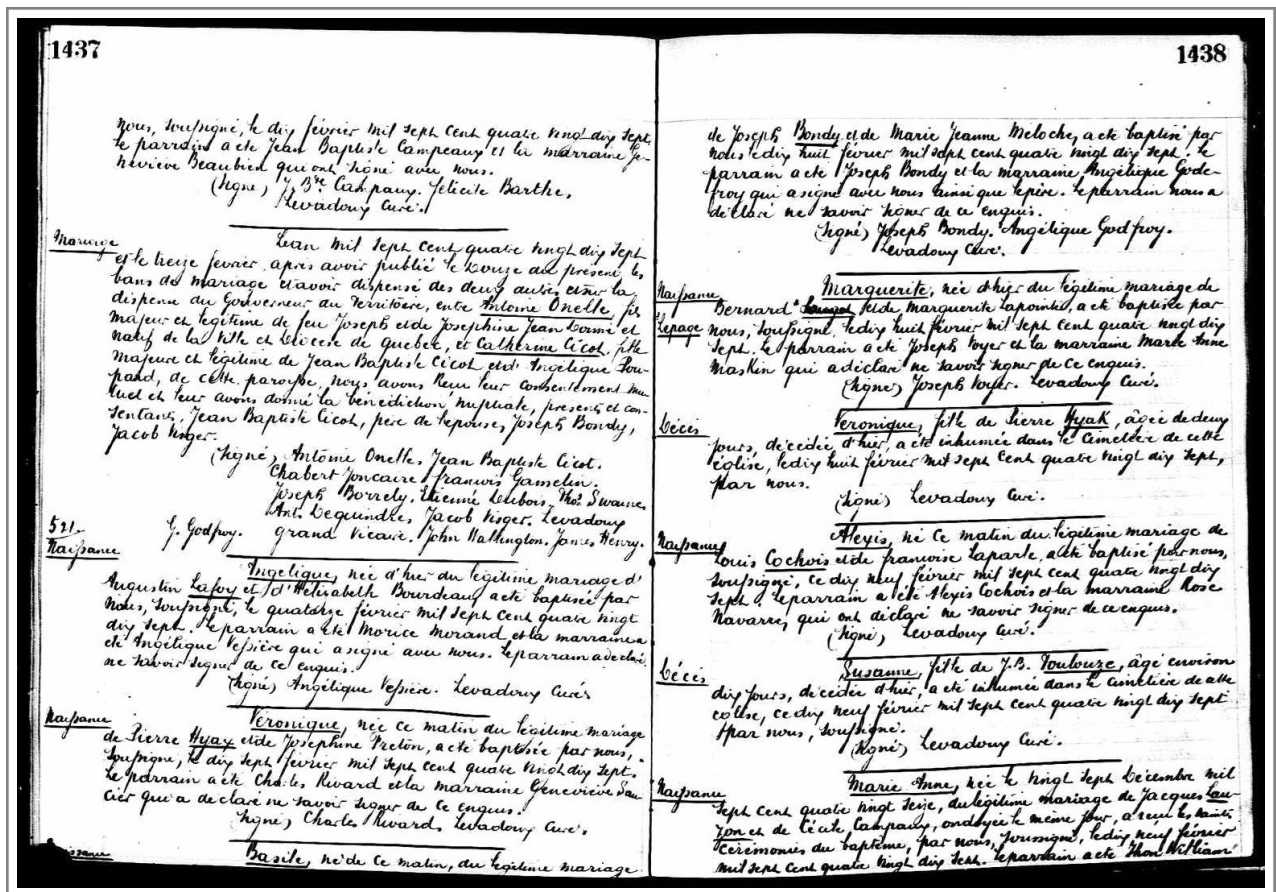 1437
nous, soussigné, le dix février mil sept cent quatre vingt dix sept,
le parrain a été Jean Baptiste Campeaux et la marraine Ge-
neviève Beaubien qui ont signé avec nous.
(Signé) J. Bte Campaux. Félicité Barthe.
Levadoux Curé.
Mariage
L'an mil sept cent quatre vingt dix sept
et le treize février, après avoir publié le douze du présent les
bans de mariage et avoir dispensé des deux autres et sur la
dispense du Gouverneur du Territoire, entre Antoine Onelle, fils
majeur et légitime de feu Joseph et de Josephine Jean Dormé et
natif de la Ville et Diocèse de Quebec, et Catherine Cicot, fille
majeure et légitime de Jean Baptiste Cicot et d'Angélique Pou-
pard, de cette paroisse, nous avons Reçu leur consentement mu-
tuel et leur avons donné la bénédiction nuptiale, presents et con-
sentants, Jean Baptiste Cicot, père de l'épouse, Joseph Bondy,
Jacob Visger.
(Signé) Antoine Onelle, Jean Baptiste Cicot.
Chabert Joncaire, francois Gamelin.
Joseph Borrely, Etienne Dubois, Thos Swaune
Ant. Dequindre, Jacob Visger. Levadoux
G. Godfroy. grand Vicaire, John Wallington. James Henry.
521.
Naissance
Angelique, née d'hier du légitime mariage d'
Augustin Lafoy et d'Hélisabeth Bourdeaux, a été baptisée par
nous, soussigné, le quatorze février mil sept cent quatre vingt
dix sept. Le parrain a été Morice Morand et la marraine a
été Angélique Vessière qui a signé avec nous. Le parrain a déclaré
ne savoir signer de ce enquis.
(Signé) Angélique Vessière. Levadoux Curé
Naissance
Véronique, née ce matin du légitime mariage
de Pierre Hyax et de Josephine Preton, a été baptisée par nous,
soussigné, le dix sept février mil sept cent quatre vingt dix sept.
Le parrain a été Charles Rivard et la marraine Geneviève Sau
cier qui a déclaré ne savoir signer de ce enquis.
(Signé) Charles Rivard. Levadoux Curé.
Basile, né de ce matin, du légitime mariage
1438
de Joseph Bondy et de Marie Jeanne Meloche, a été baptisé par
nous le dix huit février mil sept cent quatre vingt dix sept. Le
parrain a été Joseph Bondy et la marraine Angélique Gode-
froy qui a signé avec nous ainsi que le père. Le parrain nous a
déclaré ne savoir signer de ce enquis.
(Signé) Joseph Bondy. Angélique Godfroy.
Levadoux Curé.
Naissance
Marguerite, née d'hier du légitime mariage de
Bernard et de Marguerite Lapointe, a été baptisée par
Lepage
nous, soussigné, le dix huit février mil sept cent quatre vingt dix
sept. Le parrain a été Joseph Voyer et la marraine Marie Anne
Maskin qui a déclaré ne savoir signer de ce enquis.
(Signé) Joseph Voyer. Levadoux Curé.
Décès
Veronique, fille de Pierre Hyak, âgée de deux
jours, décédée d'hier, a été inhumée dans le cimetière de cette
église, le dix huit février mil sept cent quatre vingt dix sept,
par nous.
(Signé) Levadoux Curé.
Naissance
Alexis, né ce matin du légitime mariage de
Louis Cochois et de francoise Laparle, a été baptisé par nous,
soussigné, ce dix neuf février mil sept cent quatre vingt dix
sept. Le parrain a été Alexis Cochois et la marraine Rose
Navarre, qui ont déclaré ne savoir signer de ce enquis.
(Signé) Levadoux Curé.
Décès
Susanne, fille de J.B. Toulouze, âgé environ
dix jours, décédée d'hier, a été inhumée dans le cimetière de cette
eglise, ce dix neuf février mil sept cent quatre vingt dix sept
par nous, soussigné.
(Signé) Levadoux Curé.
Naissance
Marie Anne, née le vingt sept Décembre mil
sept cent quatre vingt seize, du légitime mariage de Jacques Lau-
zon et de Cécile Campaux, ondoyée le même jour, a reçu les saintes
cérémonies du baptême, par nous, soussigné, le dix neuf février
mil sept cent quatre vingt dix sept. Le parrain a été Thon William